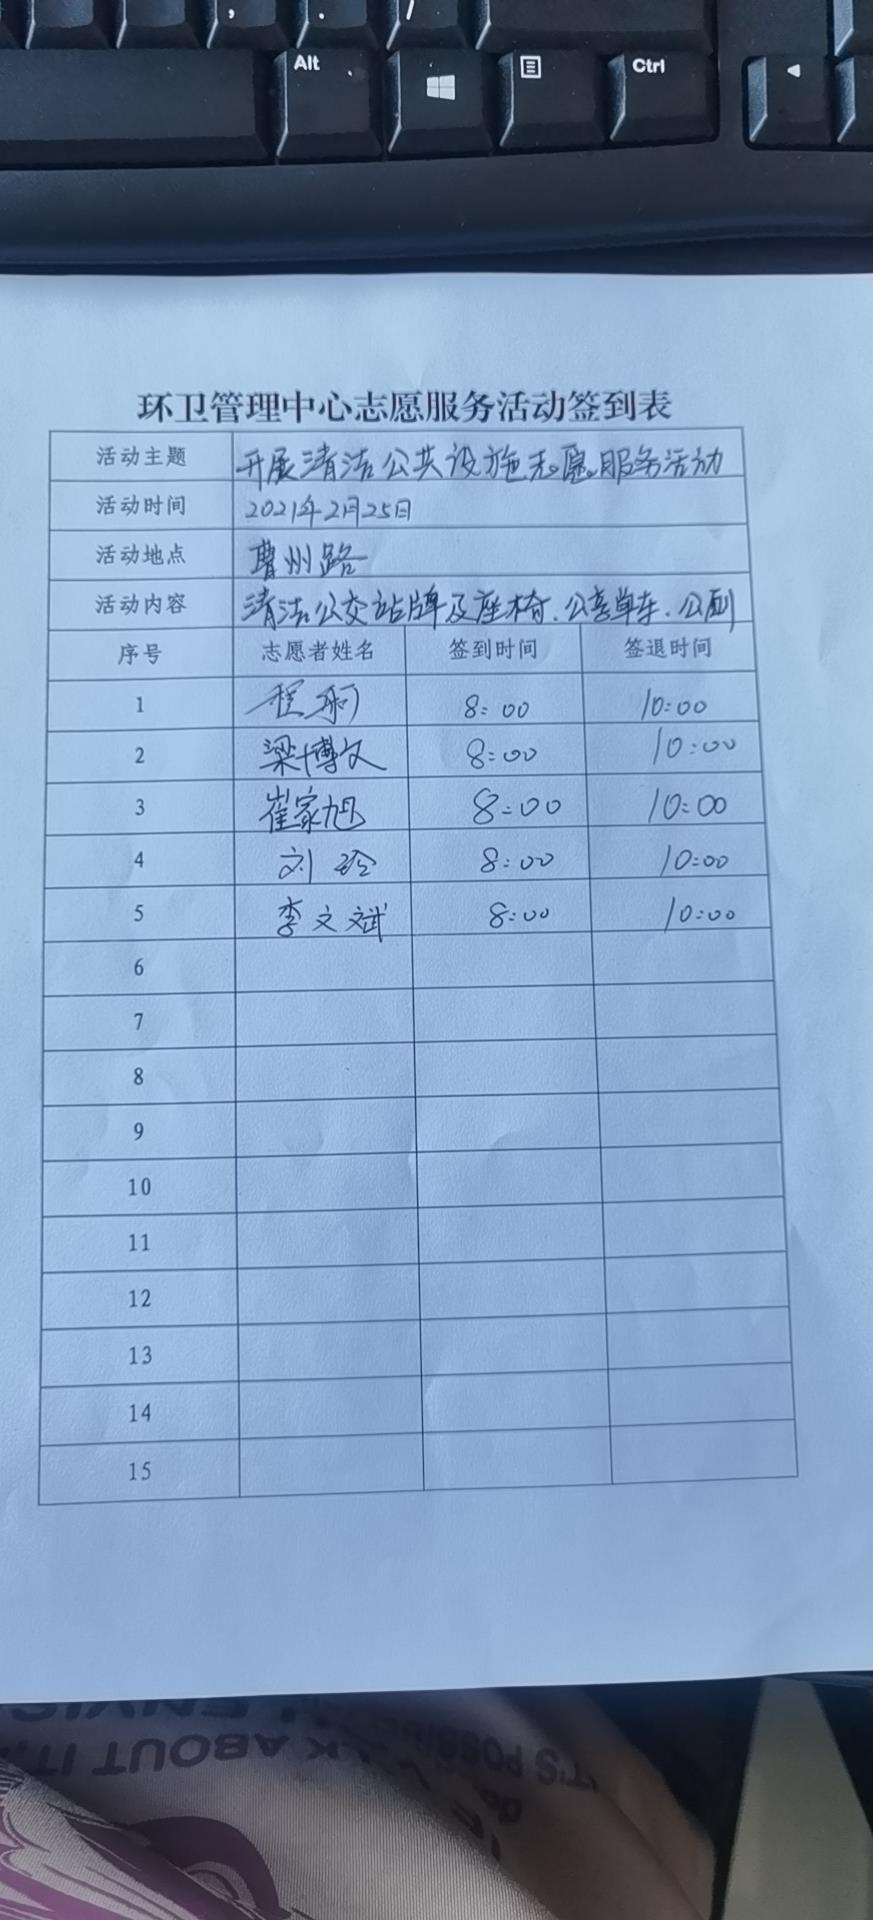 Alt
Ctrl
环卫管理中心志愿服务活动签到表
活动主题 开展清洁公共设施志愿服务活动
活动时间 2021年2月25日
活动地点 曹州路
活动内容 清洁公交站牌及座椅、公共单车、公厕
序号 志愿者姓名 签到时间 签退时间
1 程 8:00 10:00
2 梁博文 8:00 10:00
3 崔家旭 8:00 10:00
4 刘玲 8:00 10:00
5 李文斌 8:00 10:00
6
7
8
9
10
11
12
13
14
15
K ABOUT IT
T'S POSSIB